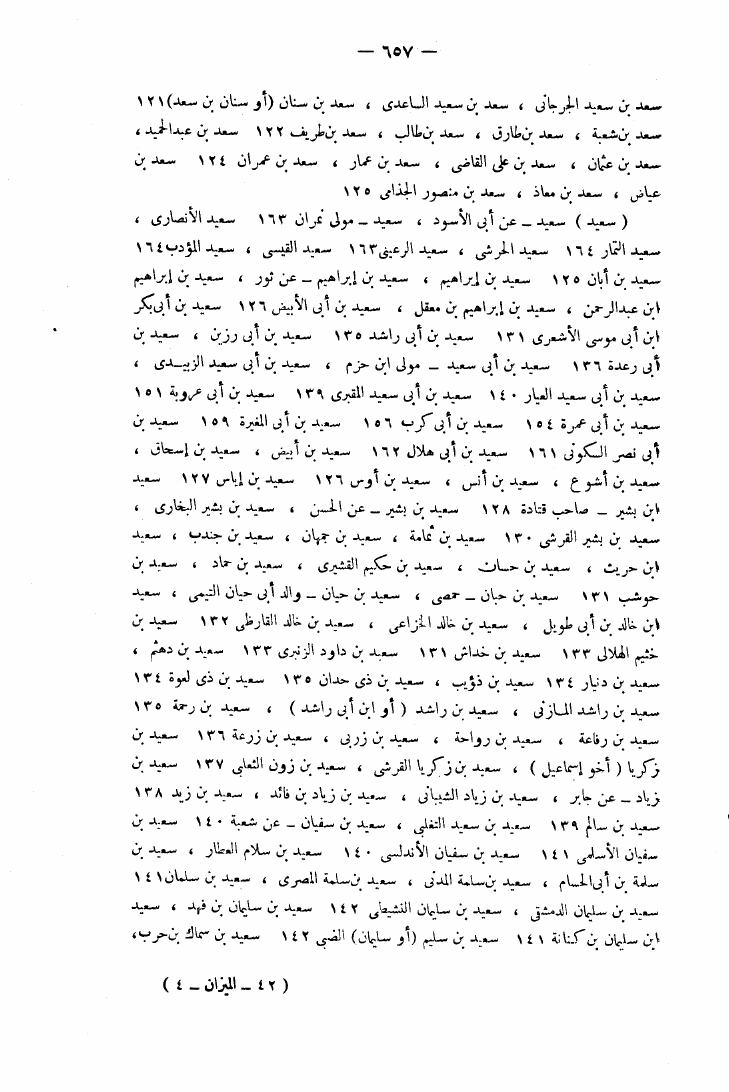 — ٦٥٧ —
سعد بن سعيد الجرجانى ، سعد بن سعيد الساعدى ، سعد بن سنان (أو سنان بن سعد)١٢١
سعد بن شعبة ، سعد بن طارق ، سعد بن طالب ، سعد بن طريف ١٢٢ سعد بن عبدالحميد ،
سعد بن عثمان ، سعد بن على القاضى ، سعد بن عمار ، سعد بن عمران ١٢٤ سعد بن
عياض ، سعد بن معاذ ، سعد بن منصور الجذامى ١٢٥
( سعيد ) سعيد ــ عن أبى الأسود ، سعيد ــ مولى نمران ١٦٣ سعيد الأنصارى ،
سعيد التمار ١٦٤ سعيد الحرشى ، سعيد الرعينى١٦٣ سعيد القيسى ، سعيد المؤدب١٦٤
سعيد بن أبان ١٢٥ سعيد بن إبراهيم ، سعيد بن إبراهيم ــ عن ثور ، سعيد بن إبراهيم
ابن عبدالرحمن ، سعيد بن إبراهيم بن معقل ، سعيد بن أبى الأبيض ١٢٦ سعيد بن أبى بكر
ابن أبى موسى الأشعرى ١٣١ سعيد بن أبى راشد ١٣٥ سعيد بن أبى رزين ، سعيد بن
أبى رعدة ١٣٦ سعيد بن أبى سعيد ــ مولى ابن حزم ، سعيد بن أبى سعيد الزبيدى ،
سعيد بن أبى سعيد العيار ١٤٠ سعيد بن أبى سعيد المقبرى ١٣٩ سعيد بن أبى عروبة ١٥١
سعيد بن أبى عمرة ١٥٤ سعيد بن أبى كرب ١٥٦ سعيد بن أبى المغيرة ١٥٩ سعيد بن
أبى نصر السكونى ١٦١ سعيد بن أبى هلال ١٦٢ سعيد بن أبيض ، سعيد بن إسحاق ،
سعيد بن أشوع ، سعيد بن أنس ، سعيد بن أوس ١٢٦ سعيد بن إياس ١٢٧ سعيد
ابن بشير ــ صاحب قتادة ١٢٨ سعيد بن بشير ــ عن الحسن ، سعيد بن بشير البخارى ،
سعيد بن بشير القرشى ١٣٠ سعيد بن ثمامة ، سعيد بن جمهان ، سعيد بن جندب ، سعيد
ابن حريث ، سعيد بن حسان ، سعيد بن حكيم القشيرى ، سعيد بن حماد ، سعيد بن
حوشب ١٣١ سعيد بن حبان ــ حمصى ، سعيد بن حيان ــ والد أبى حيان التيمى ، سعيد
ابن خالد بن أبى طويل ، سعيد بن خالد الخزاعى ، سعيد بن خالد القارظى ١٣٢ سعيد بن
خثيم الهلالى ١٣٣ سعيد بن خداش ١٣١ سعيد بن داود الزنبرى ١٣٣ سعيد بن دهثم ،
سعيد بن دنيار ١٣٤ سعيد بن ذؤيب ، سعيد بن ذى حدان ١٣٥ سعيد بن ذى لعوة ١٣٤
سعيد بن راشد المازنى ، سعيد بن راشد ( أو ابن أبى راشد ) ، سعيد بن رحمة ١٣٥
سعيد بن رفاعة ، سعيد بن رواحة ، سعيد بن زربى ، سعيد بن زرعة ١٣٦ سعيد بن
زكريا ( أخو إسماعيل ) ، سعيد بن زكريا القرشى ، سعيد بن زون الثعلبى ١٣٧ سعيد بن
زياد ــ عن جابر ، سعيد بن زياد الشيبانى ، سعيد بن زياد بن فائد ، سعيد بن زيد ١٣٨
سعيد بن سالم ١٣٩ سعيد بن سعيد التغلبى ، سعيد بن سفيان ــ عن شعبة ١٤٠ سعيد بن
سفيان الأسلمى ١٤١ سعيد بن سفيان الأندلسى ١٤٠ سعيد بن سلام العطار ، سعيد بن
سلمة بن أبى الحسام ، سعيد بن سلمة المدنى ، سعيد بن سلمة المصرى ، سعيد بن سلمان١٤١
سعيد بن سليمان الدمشقى ، سعيد بن سليمان النشيطى ١٤٢ سعيد بن سليمان بن فهد ، سعيد
ابن سليمان بن كنانة ١٤١ سعيد بن سليم (أو سليمان) الضبى ١٤٢ سعيد بن سماك بن حرب،
( ٤٢ ــ الميزان ــ ٤ )